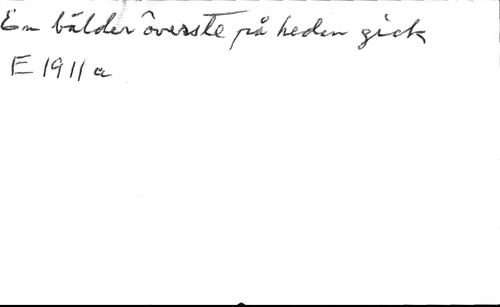 En bålder överste på heden gick
E 1911 a